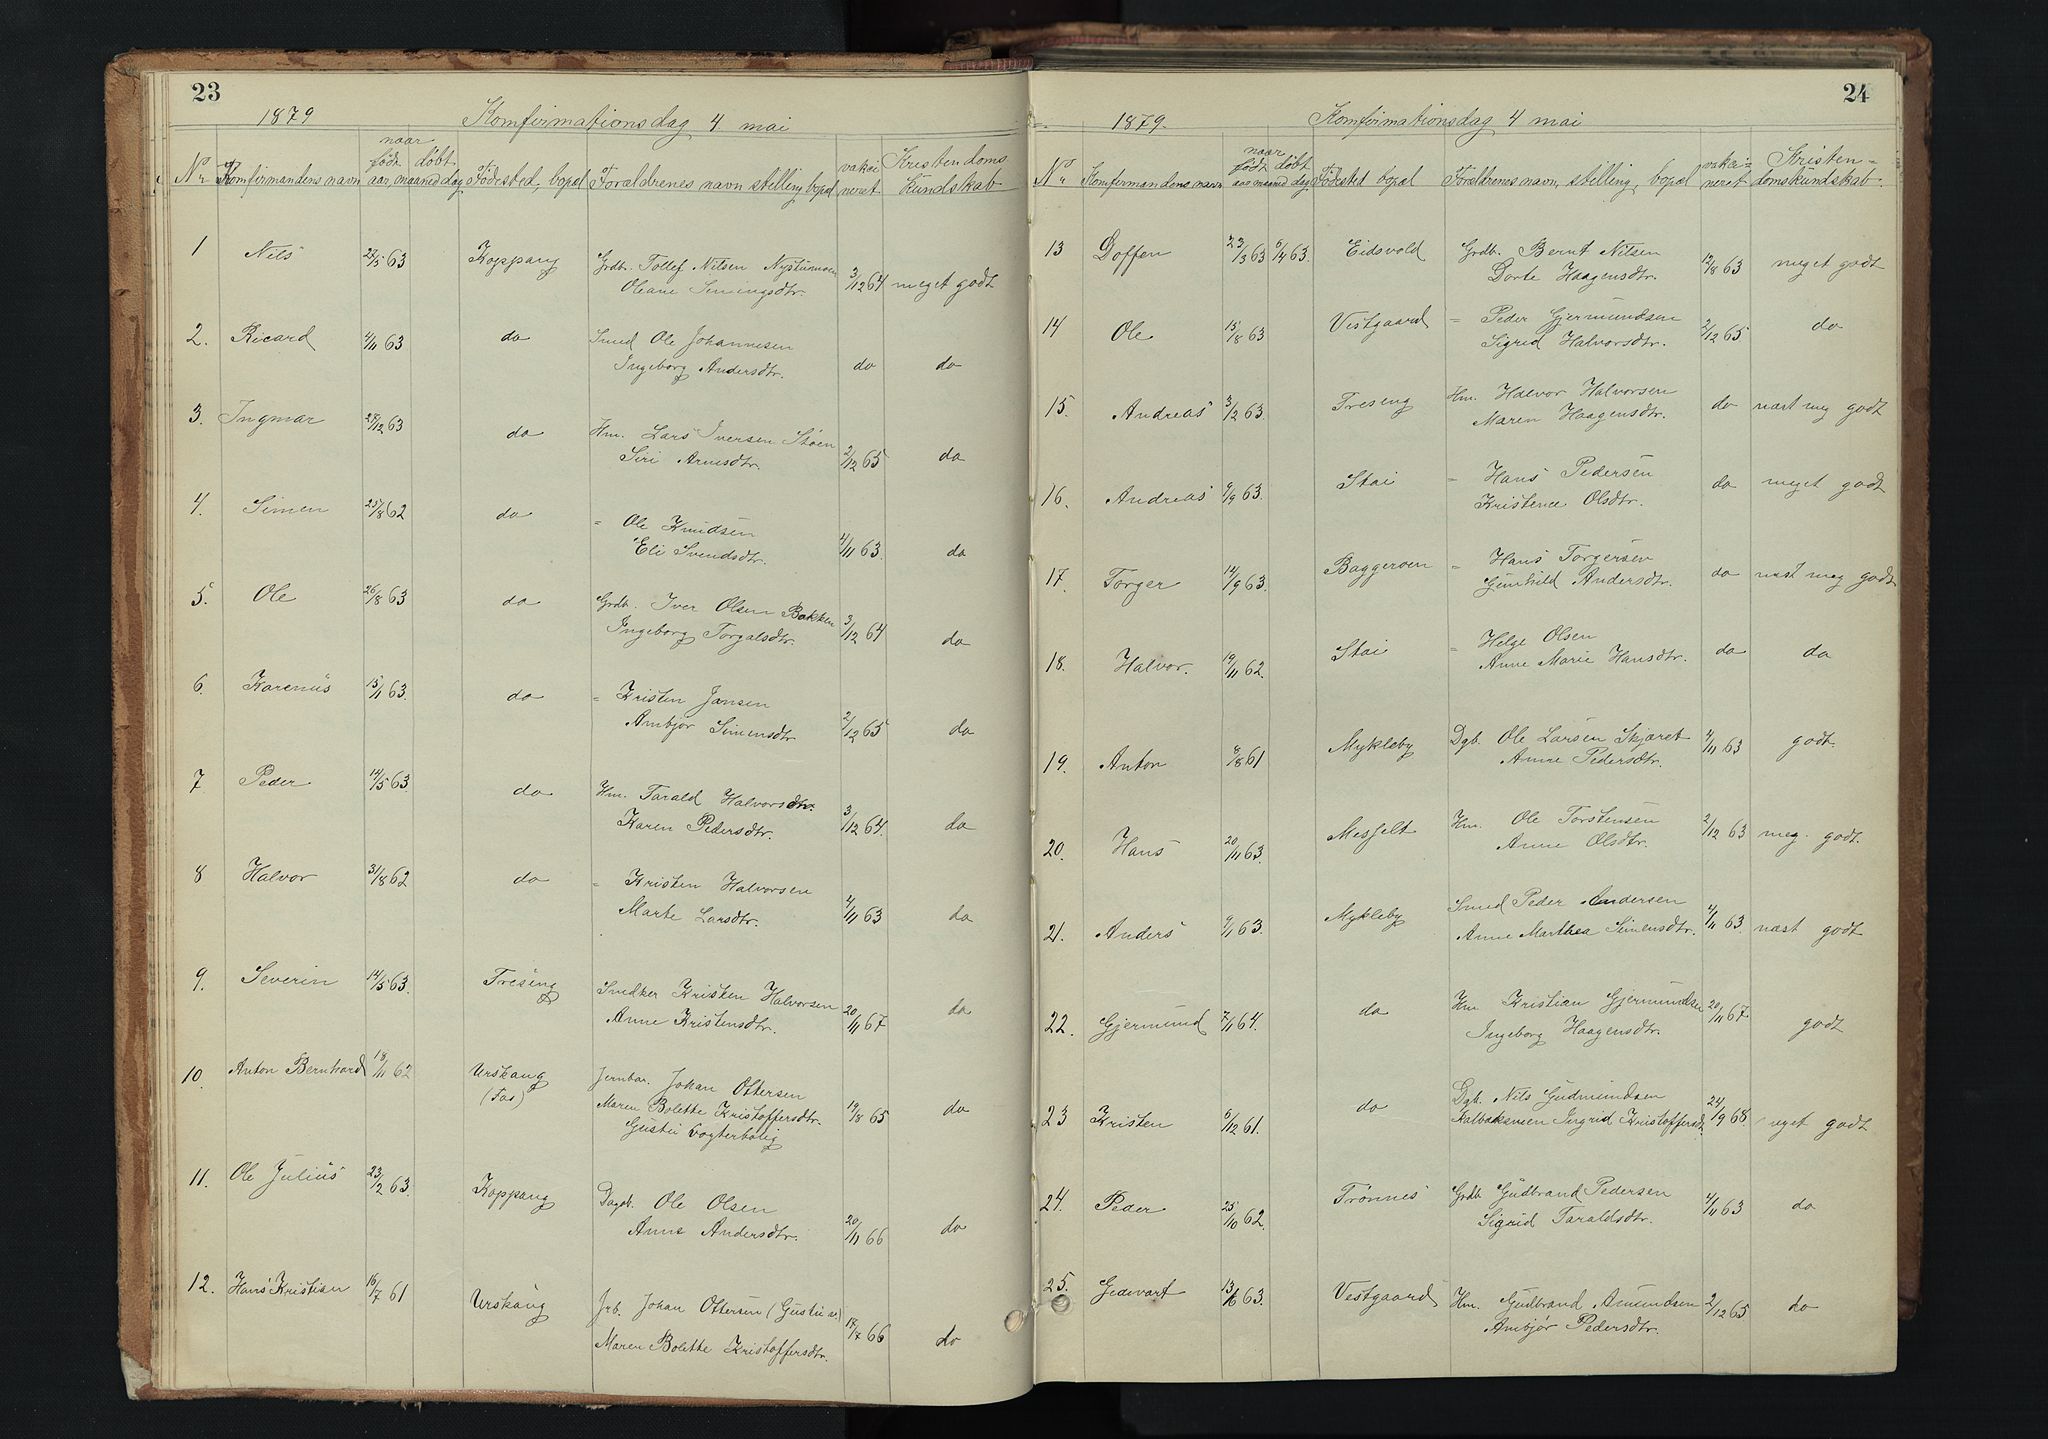 23
1879 Komfirmationsdag 4. mai
No Komfirmandens navn naar født døbt aar, maaned dag Födested, bopæl Forældrenes navn stelling bopæl vaksineret Kristendoms kundskab
1 Nils 27/5 63 Koppang Grdb. Tollef Nilsen Nystumoen 3/12 64 meget godt
Oleane Simingsdtr.
2. Ricard 4/11 63 do Smed Ole Johannesen
Ingeborg Andersdtr. do do
3. Ingmar 27/12 63 do Hm. Lars Iversen Støen 2/12 65 do
Siri Arnesdtr.
4. Simen 25/8 62 do = Ole Knudsen 4/11 63. do
Eli Svendsdtr.
5. Ole 26/8 63 do Grdb. Iver Olsen Bakken 3/12 64 do
Ingeborg Torgalsdtr.
6. Karenus 15/11 63. do = Kristen Jansen 2/12 65 do
Ambjør Simensdtr
7 Peder 14/5 63 do Hm. Tarald Halvorsdtr. 3/12 64. do
Karen Pedersdtr.
8 Halvor 31/8 62 do = Kristen Halvorsen 4/11 63 do
Marte Larsdtr.
9. Severin 14/5 63. Treseng Snedker Kristen Halvorsen 20/11 67 do
Anne Kristensdtr.
10. Anton Bernhard 18/11 62 Urskaug (Fos) Jernbar. Johan Ottersen
Maren Bolette Kristoffersdtr. 19/8 65 do
Gustu Vogterbolig
11. Ole Julius 23/2 63. Koppang Dagb. Ole Olsen 20/11 66 do
Anne Andersdtr.
12. Hans Kristian 16/7 61 Urskaug Jrb. Johan Ottersen (Gustu v.) 17/7 66 do
Maren Bolette Kristoffersdtr.
24
1879. Komfirmationsdag 4 mai
No Komfirmandens navn naar født døbt aar maaned dag Födested bopæl Forældrenes navn, stilling, bopæl vaksineret Kristendomskundskab.
13 Doffen 23/3 63 5/4 63. Eidsvold Grdb. Bernt Nilsen 12/8 63 meget godt
Dorte Haagensdtr.
14 Ole 15/8 63 Vestgaard = Peder Gjermundsen 2/12 65 do
Sigrid Halvorsdtr.
15. Andreas 3/2 63. Treseng Hm. Halvor Halvorsen do næst meg godt
Maren Haagensdtr.
16. Andreas 9/9 63. Stai = Hans Pedersen do meget godt
Kristence Olsdtr.
17. Torger 14/9 63. Baggeroen = Hans Torgersen do næst meg godt
Gunhild Andersdtr.
18. Halvor. 19/11 62. Stai = Helge Olsen
Anne Marie Hansdtr. do do
19. Anton 8/8 61 Mykleby Dgb. Ole Larsen Skjæret 4/11 63 godt.
Anne Pedersdtr.
20. Hans 20/11 63. Messelt Hm. Ole Torstensen 2/12 63 meg. godt.
Anne Olsdtr.
21. Anders 9/1 63. Mykleby Smed Peder Andersen
Anne Marthea Simensdtr. 4/11 63. næst godt
22. Gjermund 7/11 64. do Hm Kristian Gjermundsen 20/11 67. godt
Ingeborg Haagensdtr.
23 Kristen 5/12 61. do Dgb. Nils Gudmundsen
Kalbaksveen Ingrid Kristoffersdt 24/9 68. meget godt
24. Peder 25/10 62. Trønnes Grdb Gudbrand Pedersen 4/11 63 do
Sigrid Taraldsdtr.
25. Gedevart 13/6 63. Vestgaard Hm. Gudbrand Amundsen 2/12 65 do
Ambjør Pedersdtr.